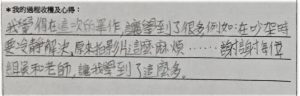 ＊我的過程收穫及心得：
我覺得在這次的專作，讓學到了很多例如：在吵架時
要冷靜解決，原來拍影片這麼麻煩……謝謝每位
組員和老師，讓我學到了這麼多。